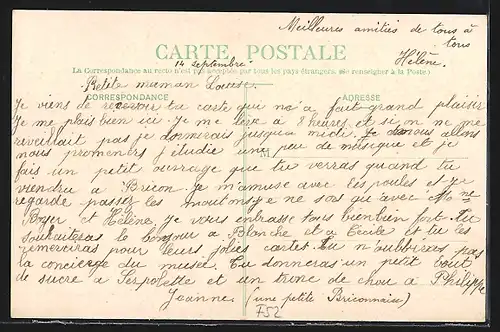 Meilleures amitiés de tous à
tous
Hélène.
CARTE POSTALE
14 septembre
(La Correspondance au recto n'est pas acceptée par tous les pays étrangers. (Se renseigner à la Poste.)
Petite maman Louise.
CORRESPONDANCE
ADRESSE
Je viens de recevoir ta carte qui m'a fait grand plaisir
Je me plais bien ici. Je me lève à 8 heures et si on ne me
réveillait pas je dormirais jusqu'à midi. Je nous allons
nous promener j'étudie une peu de musique et je
M
fais un petit ouvrage que tu verras quand tu
viendra à Bricon. Je m'amuse avec les poules et Je
regarde passer les moutons je ne sors qu avec Mme
Boyer et Hélène Je vous embrasse tous bien bien fort. Tu
souhaiteras le bonjour à Blanche et à Cécile et tu les
remerciras pour leurs jolies cartes. Tu n'oublieras pas
la concierge du musée. Tu donneras un petit bout
de sucre à Serpolette et un tronc de chou à Philippe
Jeanne (une petite Briconnaise)
F52